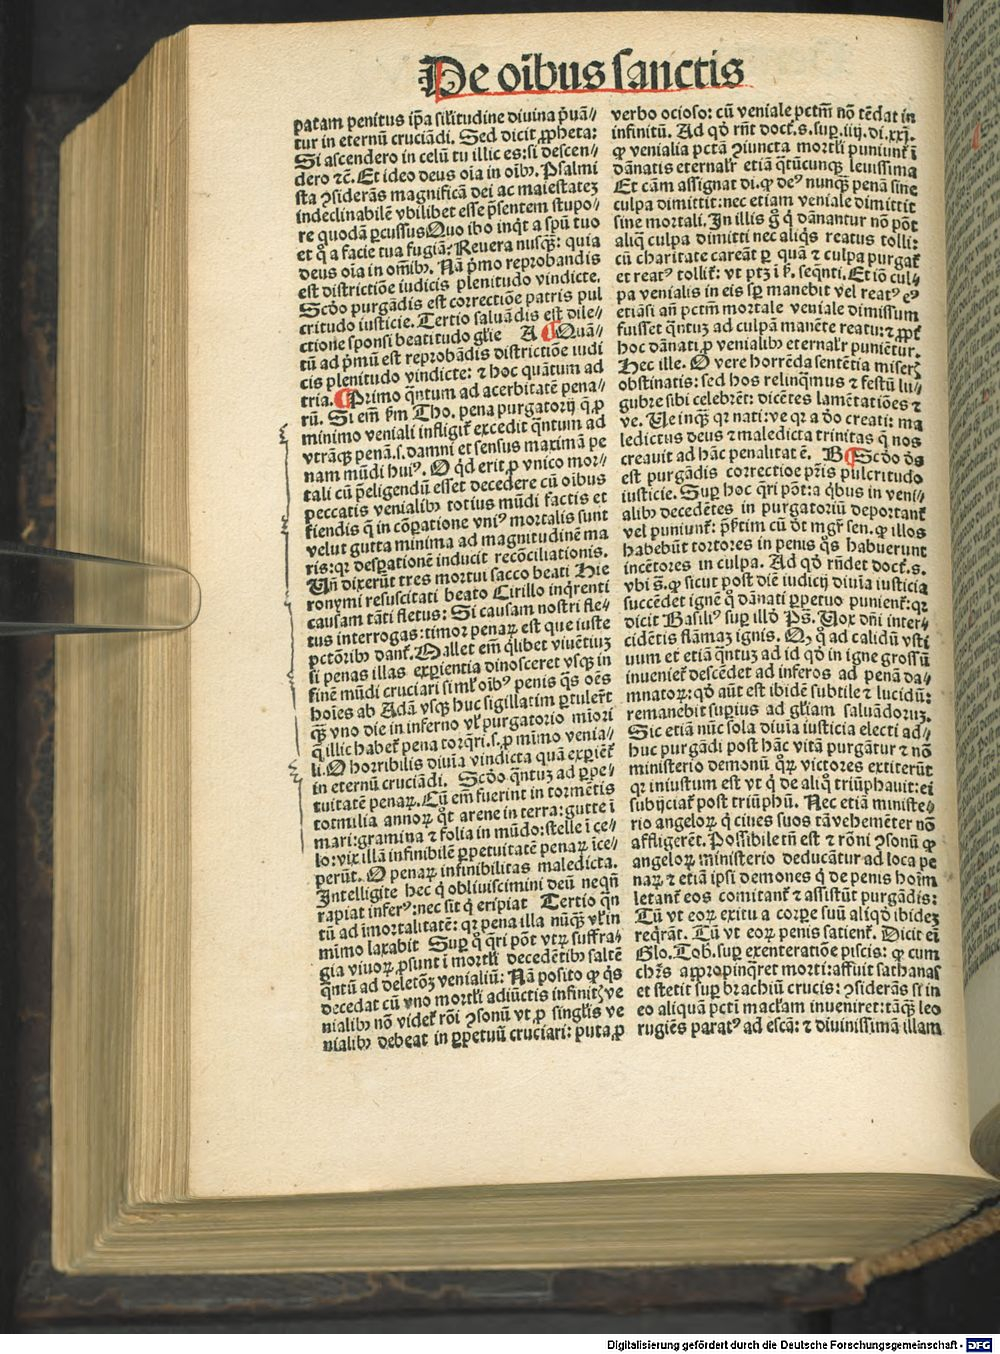 De oĩbus sanctis
patam penitus ip̃a silitudine diuina p̃uã⸗
tur in eternũ cruciãdi. Sed dicit ꝓpheta:
Si ascendero in celũ tu illic es: si descen⸗
dero ⁊c̃. Et ideo deus oĩa in oĩbꝰ. Psalmi
sta ꝯsiderãs magnificã dei ac maiestatez
indeclinabilẽ vbilibet esse p̃sentem stupo⸗
re quodã ꝑcussus Quo ibo inq̃t a spũ tuo
et q̊ a facie tua fugiã? Reuera nusq̃ꝫ: quia
deus oĩa in om̃ibꝫ. Nã p̃mo reprobandis
est districtiõe iudicis plenitudo vindicte.
Scd̃o purgãdis est correctiõe patris pul
critudo iusticie. Tertio saluãdis est dile⸗
ctione sponsi beatitudo gl̃ie A Quã⸗
tũ ad p̃mũ est reprobãdis districtiõe iudi
cis plenitudo vindicte: ⁊ hoc quãtum ad
tria. Primo q̃ntum ad acerbitatẽ pena⸗
rũ. Si em̃ ẜm Tho. pena purgatorij q̃ ꝓ
minimo veniali infligit᷑ excedit q̃ntum ad
vtrãqꝫ penã.s. damni et sensus maximã pe
nam mũdi huiꝰ. O qd̓ erit ꝓ vnico mor⸗
tali cũ p̃eligendũ esset decedere cũ oibus
peccatis venialibꝫ totius mũdi factis et
fiendis q̃ in cõꝑatione vniꝰ mortalis sunt
velut gutta minima ad magnitudinẽ ma
ris: qꝛ desꝑationẽ inducit recõciliationis.
Vñ dixerũt tres mortui sacco beati Hie
ronymi resuscitati beato Cirillo inq̃renti
causam tãti fletus: Si causam nostri fle⸗
tus interrogas: timor penaꝝ est que iuste
pctõribꝫ dant᷑. Mallet em̃ q̃libet viuẽtiuꝫ
si penas illas exꝑientia dinosceret vsqꝫ in
finẽ mũdi cruciari siml̓ oĩbꝰ penis q̃s oẽs
hoĩes ab Adã vsqꝫ huc sigillatim ꝑtulerũt
q̃ꝫ vno die in inferno vl̓ purgatorio minori
q̃ illic habet᷑ pena torq̃ri.s. ꝓ minimo venia⸗
li. O horribilis diuĩa vindicta quã exꝑiẽt᷑
in eternũ cruciãdi. Scd̃o q̃ntuꝫ ad ꝑpe⸗
tuitatẽ penaꝝ. Cũ em̃ fuerint in tormẽtis
tot milia annoꝝ q̊t arene in terra: gutte ĩ
mari: gramina ⁊ folia in mũdo: stelle ĩ ce⸗
lo: vix illã infinibilẽ ꝑpetuitatẽ penaꝝ ĩce⸗
perũt. O penaꝝ infinibilitas maledicta.
Intelligite hec q̇ obliuiscimini deũ neqñ
rapiat inferꝰ: nec sit q̇ eripiat Tertio q̃n
tũ ad ĩmortalitatẽ: qꝛ pena illa nũq̃ꝫ vl̓ in
mĩmo laxabit Suꝑ q̊ q̃ri põt vtꝝ suffra⸗
gia viuoꝝ ꝓsunt ĩ mortl̓i decedẽtibꝫ saltẽ
q̃ntũ ad deletõꝫ venialiũ: Nã posito ꝙ q̇s
decedat cũ vno mortl̓i adiũctis infinit̃ ve
nialibꝫ nõ videt᷑ rõi ꝯsonũ vt ꝓ singl̓is ve
nialibꝫ debeat in ꝑpetuũ cruciari: puta ꝓ
verbo ocioso: cũ veniale pctm̃ nõ tẽdat in
infinitũ. Ad qd̓ rñt doct̃.s. suꝑ.iiij. di.xxj.
ꝙ venialia pctã ꝯiuncta mortl̓i puniunt᷑ ĩ
dãnatis eternalr̓ etiã q̃tũcunqꝫ leuissima
Et cãm assignat di. ꝙ deꝰ nunq̃ꝫ penã sine
culpa dimittit: nec etiam veniale dimittit
sine mortali. In illis g̊ q̇ dãnantur nõ põt
aliq̃ culpa dimitti nec aliq̇s reatus tolli:
cũ charitate careãt ꝑ quã ⁊ culpa purgat᷑
et reatꝰ tollit᷑: vt ptꝫ ĩ ẜ. seq̃nti. Et iõ cul⸗
pa venialis in eis sꝑ manebit vel reatꝰ eiꝰ
etiãsi añ pctm̃ mortale veniale dimissum
fuisset q̃ntuꝫ ad culpã manẽte reatu: ⁊ ꝓpt᷑
hoc dãnati ꝓ venialibꝫ eternalr̓ puniẽtur.
Hec ille. O vere horrẽda sentẽtia miserꝫ
obstinatis: sed hos relinq̃mus ⁊ festũ lu⸗
gubre sibi celebrẽt: dicẽtes lamẽtatiões ⁊
ve. Ve inq̃t qꝛ nati: ve qꝛ a dõ creati: ma
ledictus deus ⁊ maledicta trinitas q̃ nos
creauit ad hãc penalitatẽ. B Scd̃o d̃s
est purgãdis correctioe pr̃is pulcritudo
iusticie. Suꝑ hoc q̃ri põt: a q̇bus in veni⸗
alibꝫ decedẽtes in purgatoriũ deportant᷑
vel puniunt᷑: p̃ẜtim cũ d̓t mg̃r sen. ꝙ illos
habebũt tortores in penis q̊s habuerunt
incẽtores in culpa. Ad qd̓ rñdet doct̃.s.
vbi s̃. ꝙ sicut post diẽ iudicij diuĩa iusticia
succẽdet ignẽ q̊ dãnati ꝑpetuo punient᷑: qꝛ
dicit Basiliꝰ suꝑ illd̓ Ps̃. Vox dñi inter⸗
cidẽtis flãmaꝫ ignis. Qꝫ q̊ ad calidũ vsti
uum et etiã q̃ntuꝫ ad id qd̓ in igne grossũ
inueniet᷑ descẽdet ad inferos ad penã da⸗
mnatoꝝ: qd̓ aũt est ibidẽ subtile ⁊ lucidũ:
remanebit suꝑius ad gl̓iam saluãdoruꝫ.
Sic etiã nũc sola diuĩa iusticia electi ad⸗
huc purgãdi post hãc vitã purgãtur ⁊ nõ
ministerio demonũ q̊ꝝ victores extiterũt
qꝛ iniustum est vt q̇ de aliq̊ triũphauit: ei
subijciat᷑ post triũphũ. Nec etiã ministe⸗
rio angeloꝝ q̇ ciues suos tã vehemẽter nõ
affligerẽt. Possibile tñ est ⁊ rõni ꝯsonũ ꝙ
angeloꝝ ministerio deducãtur ad loca pe
naꝝ ⁊ etiã ipsi demones q̇ de penis hoĩm
letant᷑ eos comitant᷑ ⁊ assistũt purgãdis:
Tũ vt eoꝝ exitu a corꝑe suũ aliqd̓ ibideꝫ
req̃rãt. Tũ vt eoꝝ penis satient᷑. Dicit ei
Glo. Tob. suꝑ exenteratiõe piscis: ꝙ cum
chr̃s appropinq̃ret morti: affuit sathanas
et stetit suꝑ brachiũ crucis: ꝯsiderãs si in
eo aliquã pcti maclãm inueniret: tãq̃ꝫ leo
rugiẽs paratꝰ ad escã: ⁊ diuinissimã illam
Digitalisierung gefördert durch die Deutsche Forschungsgemeinschaft - DFG